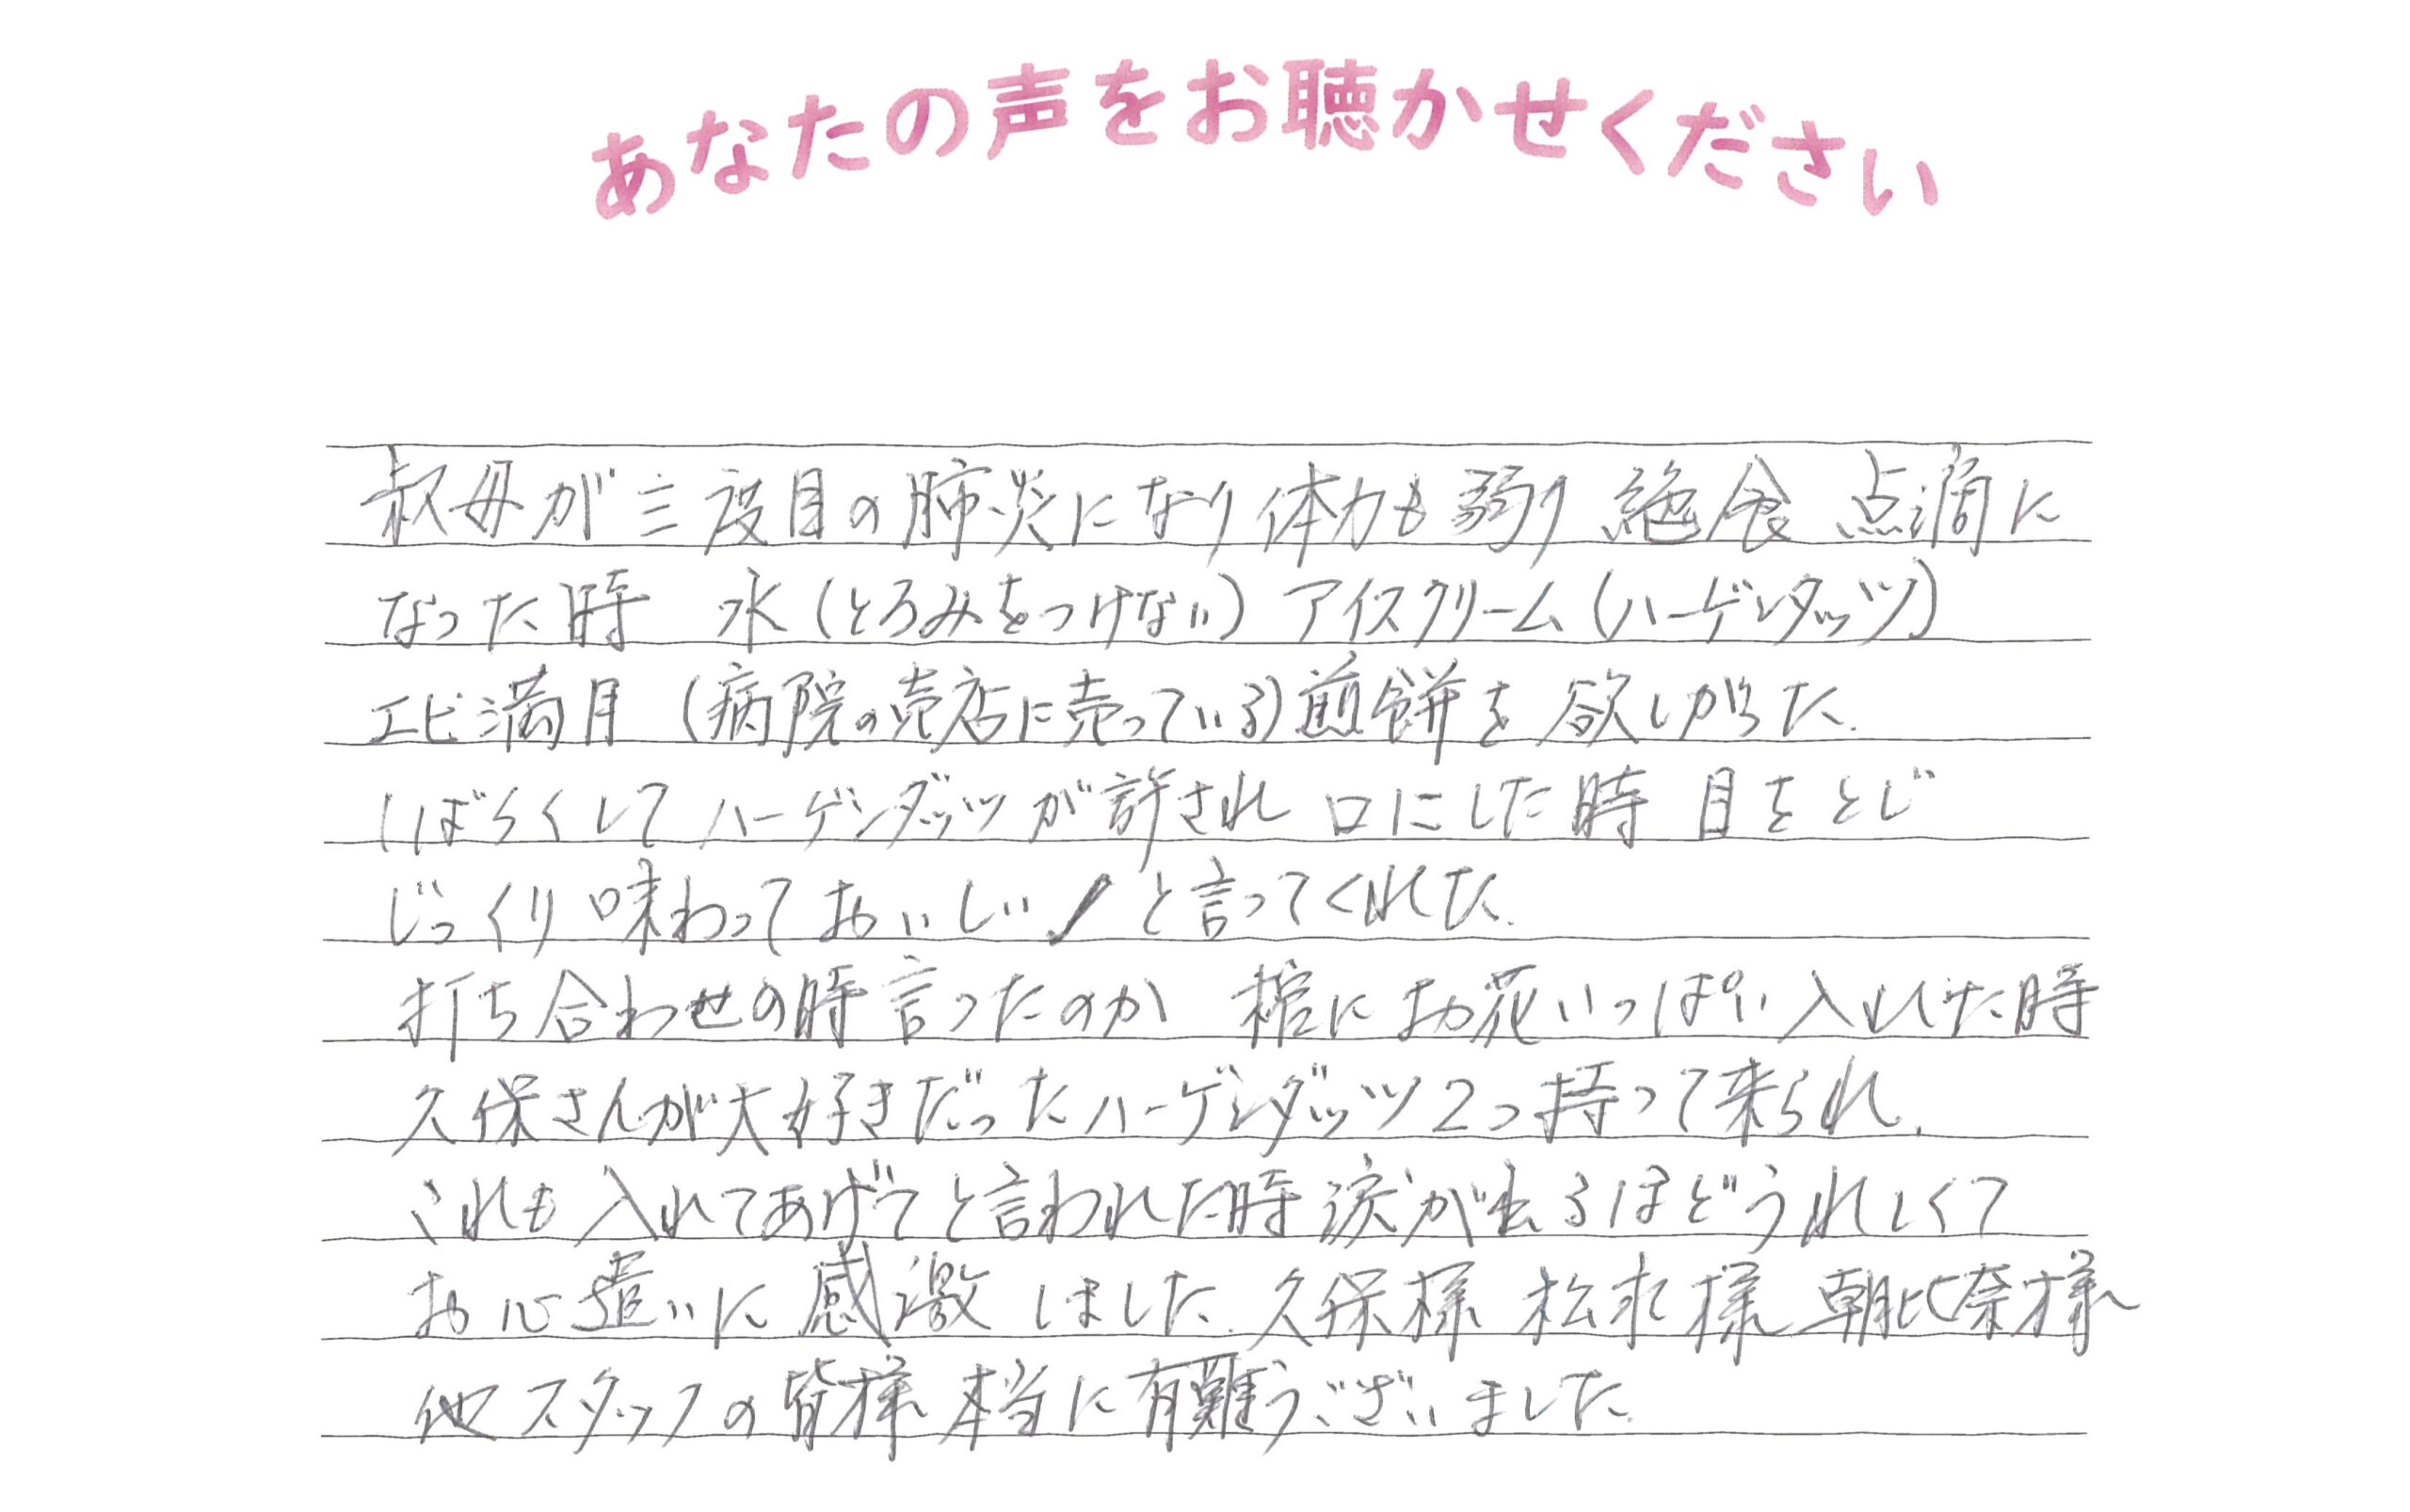 あなたの声をお聴かせください
叔母が三度目の肺炎になり体力も弱り 絶食 点滴に
なった時 水(とろみをつけない) アイスクリーム(ハーゲンダッツ)
エビ満月 (病院の売店に売っている)煎餅を欲しがった.
しばらくしてハーゲンダッツが許され 口にした時 目をとじ
じっくり味わっておいしい!と言ってくれた.
打ち合わせの時言ったのか 棺にお花いっぱい入れた時
久保さんが大好きだったハーゲンダッツ2つ持って来られ.
これも入れてあげてと言われた時涙が出るほどうれしくて
お心遣いに感激しました.久保様 松永様 朝比奈様
他スタッフの皆様本当に有難うございました.